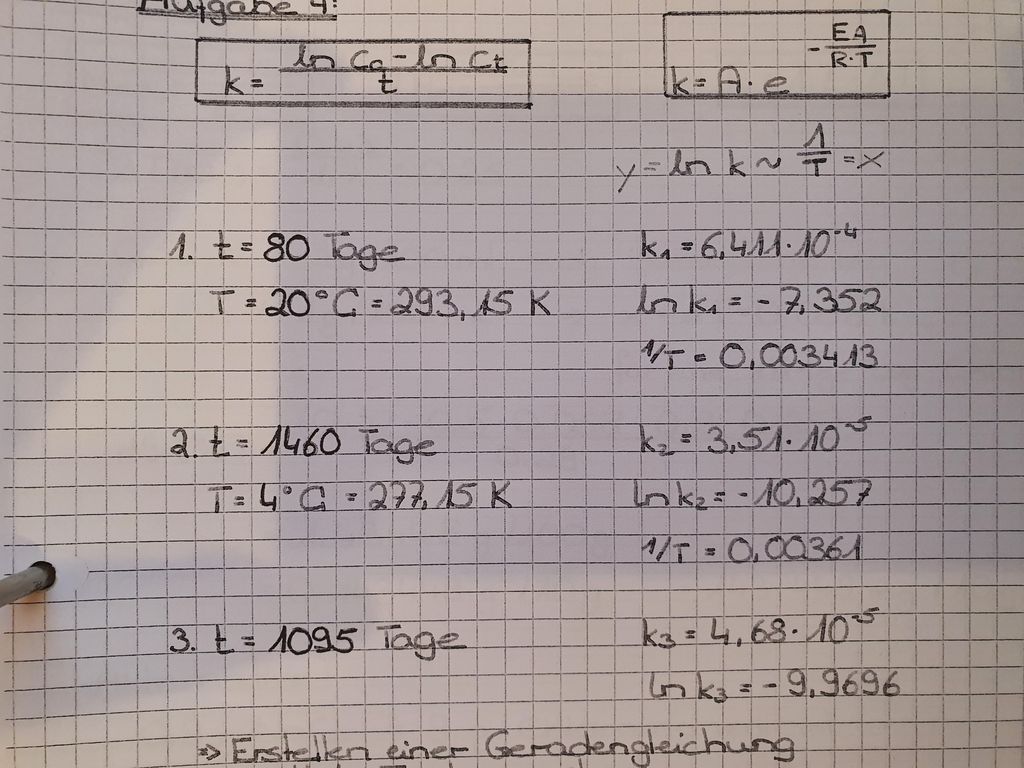 Aufgabe 4:
k = (ln C₀ - ln Cₜ) / t
k = A · e^(-EA/(R·T))
y = ln k ~ 1/T = x
1. t = 80 Tage
k₁ = 6,411 · 10⁻⁴
T = 20°C = 293,15 K
ln k₁ = -7,352
1/T = 0,003413
2. t = 1460 Tage
k₂ = 3,51 · 10⁻⁵
T = 4°C = 277,15 K
ln k₂ = -10,257
1/T = 0,00361
3. t = 1095 Tage
k₃ = 4,68 · 10⁻⁵
ln k₃ = -9,9696
⇒ Erstellen einer Geradengleichung